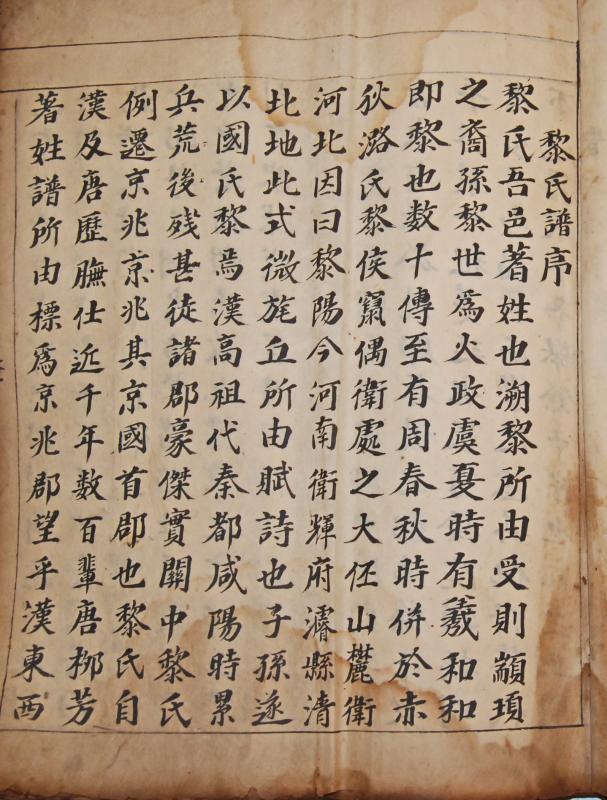 黎氏譜序
黎氏吾邑著姓也溯黎所由受則顓頊
之裔孫黎世為火政虞夏時有羲和和
即黎也数十傳至有周春秋時併於赤
狄潞氏黎侯竄偶衛處之大伾山麓衛
河北因曰黎陽今河南衛輝府濬縣清
北地此式微旄丘所由賦詩也子孫遂
以國氏黎焉漢高祖代秦都咸陽時累
兵荒後残甚徒諸郡豪傑實關中黎氏
例遷京兆京兆其京國首郡也黎氏自
漢及唐歷膴仕近千年数百輩唐柳芳
著姓譜所由標為京兆郡望乎漢東西